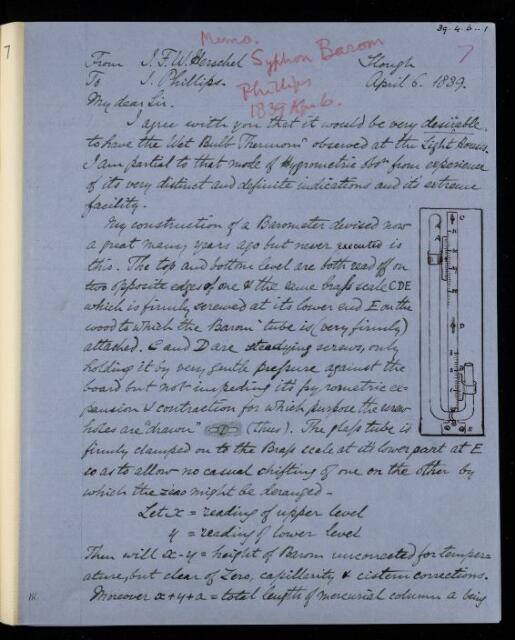 39-4-6-1
7
7
Memo.
Syphon Barom
Phillips
1839 Apr 6.
From J.F.W. Herschel
Slough
To J. Phillips.
April 6. 1839.
My dear Sir.
I agree with you that it would be very desirable
to have the Wet Bulb Thermomr observed at the Light Houses.
I am partial to that mode of Hygrometric Obsn from experience
of its very distinct and definite indications and its extreme
facility.
My construction of a Barometer devised now
a great many years ago but never executed is
this. The top and bottom level are both read off on
two opposite edges of one & the same brass scale CDE
which is firmly screwed at its lower end E on the
wood to which the Baromr tube is (very firmly)
attached. C and D are steadying screws, only
holding it by very gentle pressure against the
board but not impeding its pyrometric ex-
pansion & contraction for which purpose the screw
holes are "drawn" (thus). The glass tube is
firmly clamped on to the Brass scale at its lower part at E
so as to allow no casual shifting of one on the other by
which the zero might be deranged -
Let x = reading of upper level
y = reading of lower level
Then will x - y = height of Barom uncorrected for temper-
ature, but clear of Zero, capillarity & cistern corrections.
Moreover x + y + a = total length of mercurial column a being
C
D
E